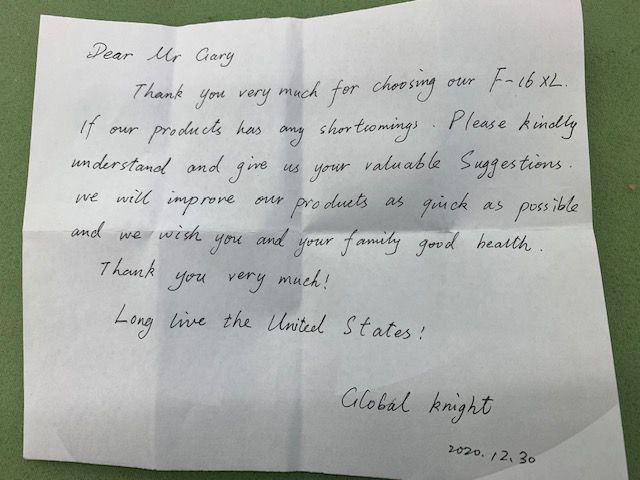 Dear Mr Gary
Thank you very much for choosing our F-16XL.
If our products has any shortcomings. Please kindly
understand and give us your valuable Suggestions.
we will improve our products as quick as possible
and we wish you and your family good health.
Thank you very much!
Long live the United States!
Global knight
2020.12.30